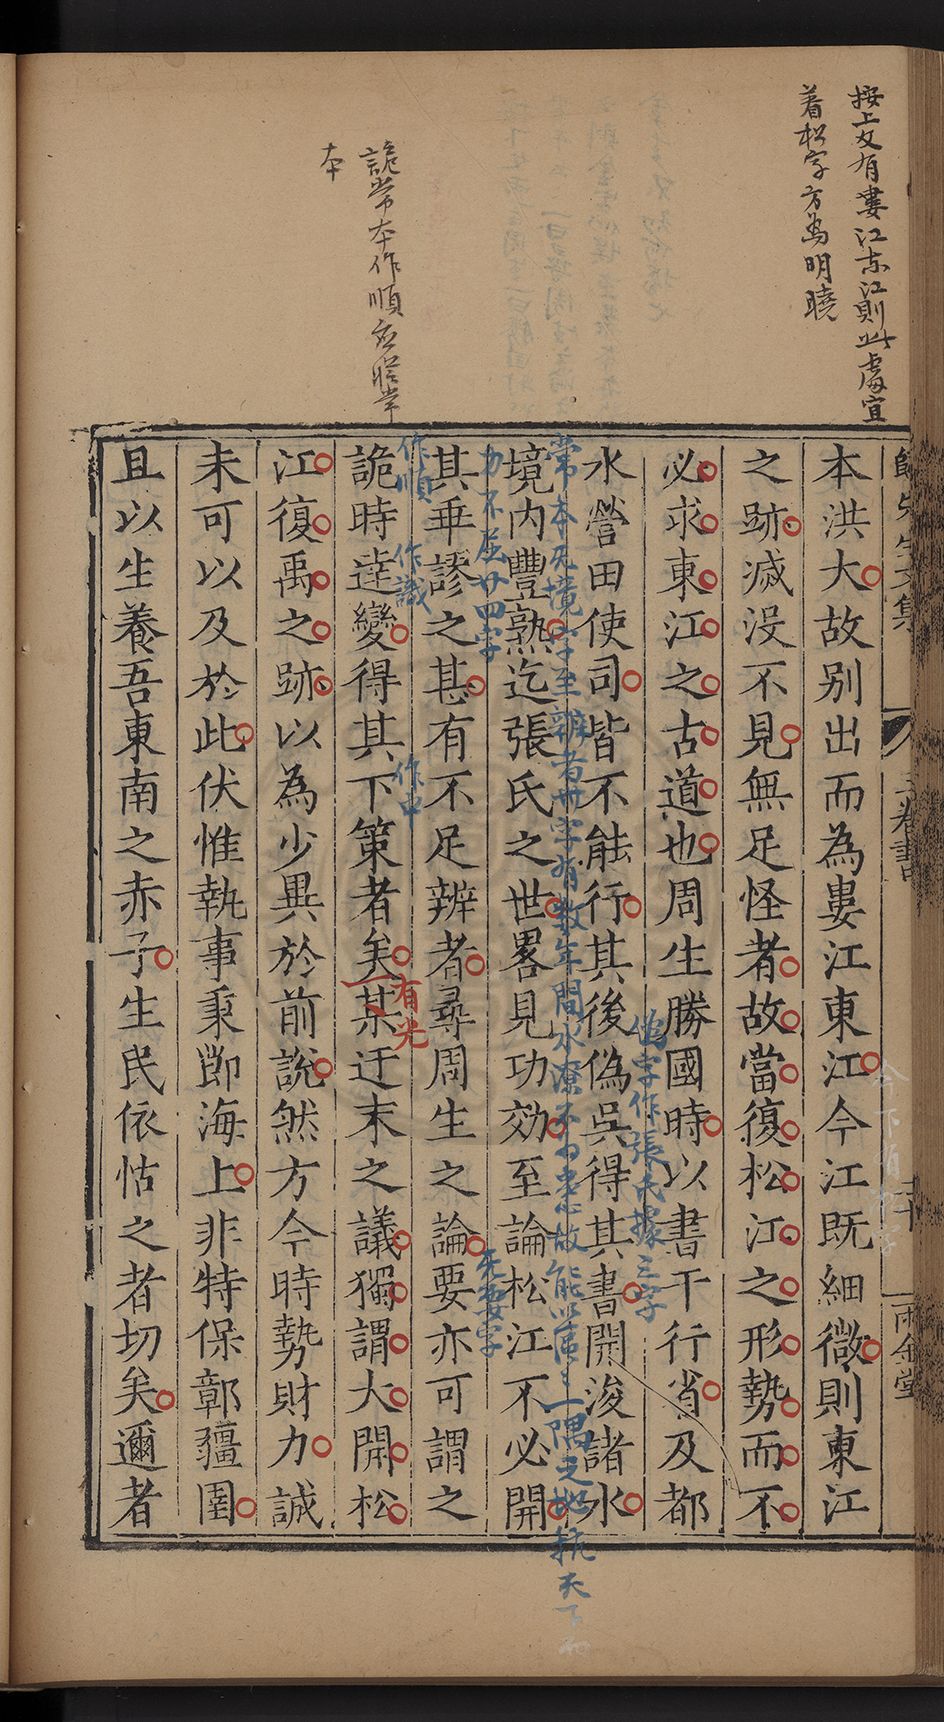 按上文有婁江東江則此處宜
着松字方爲明曉
詭常本作順應照常
本
本洪大故别出而為婁江東江今江既細微則東江
之跡滅没不見無足怪者故當復松江之形勢而不
必求東江之古道也周生勝國時以書干行省及都
偽字作張氏據三字
水營田使司皆不能行其後偽吳得其書開浚諸水
常本无境字至辨者卅字有數年間水潦不為患故能以區〻一隅之地抗天下而
力不屈廿四字
境内豐熟迄張氏之世畧見功効至論松江不必開
无要字
其乖謬之甚有不足辨者尋周生之論要亦可謂之
作順
作識
作中
有光
詭時達變得其下策者矣某迂末之議獨謂大開松
江復禹之跡以為少異於前說然方今時勢財力誠
未可以及於此伏惟執事秉節海上非特保鄣疆圉
且以生養吾東南之赤子生民依怙之者切矣邇者
三卷書
雨金堂